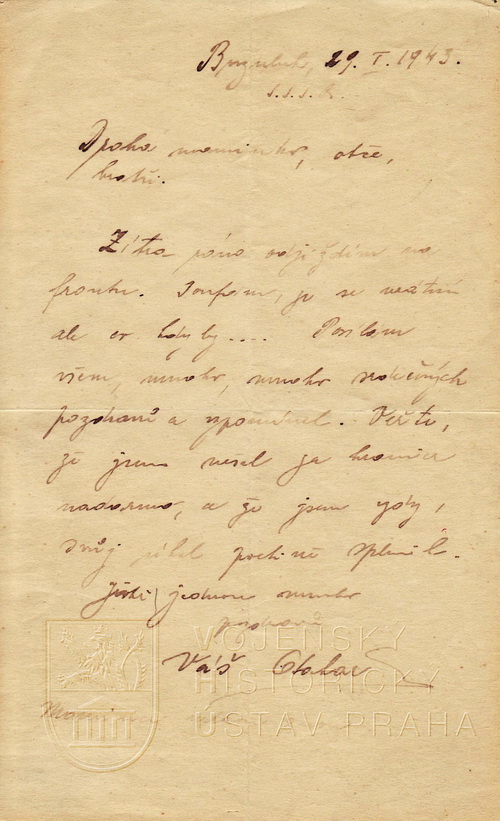 Buzuluk, 29. I. 1943.
S.S.S.R.
Drahá maminko, otče,
bratři.
Zítra ráno odjíždím na
frontu. Doufám, že se vrátím
ale co kdyby.... Posílám
všem, mnoho, mnoho srdečných
pozdravů a vzpomínek. Věřte,
že jsem nešel za hranice
nadarmo, a že jsem vždy,
svůj úkol poctivě splnil.
Ještě jednou mnoho
pozdravů
Váš Otakar
VOJENSKÝ
HISTORICKÝ
ÚSTAV PRAHA